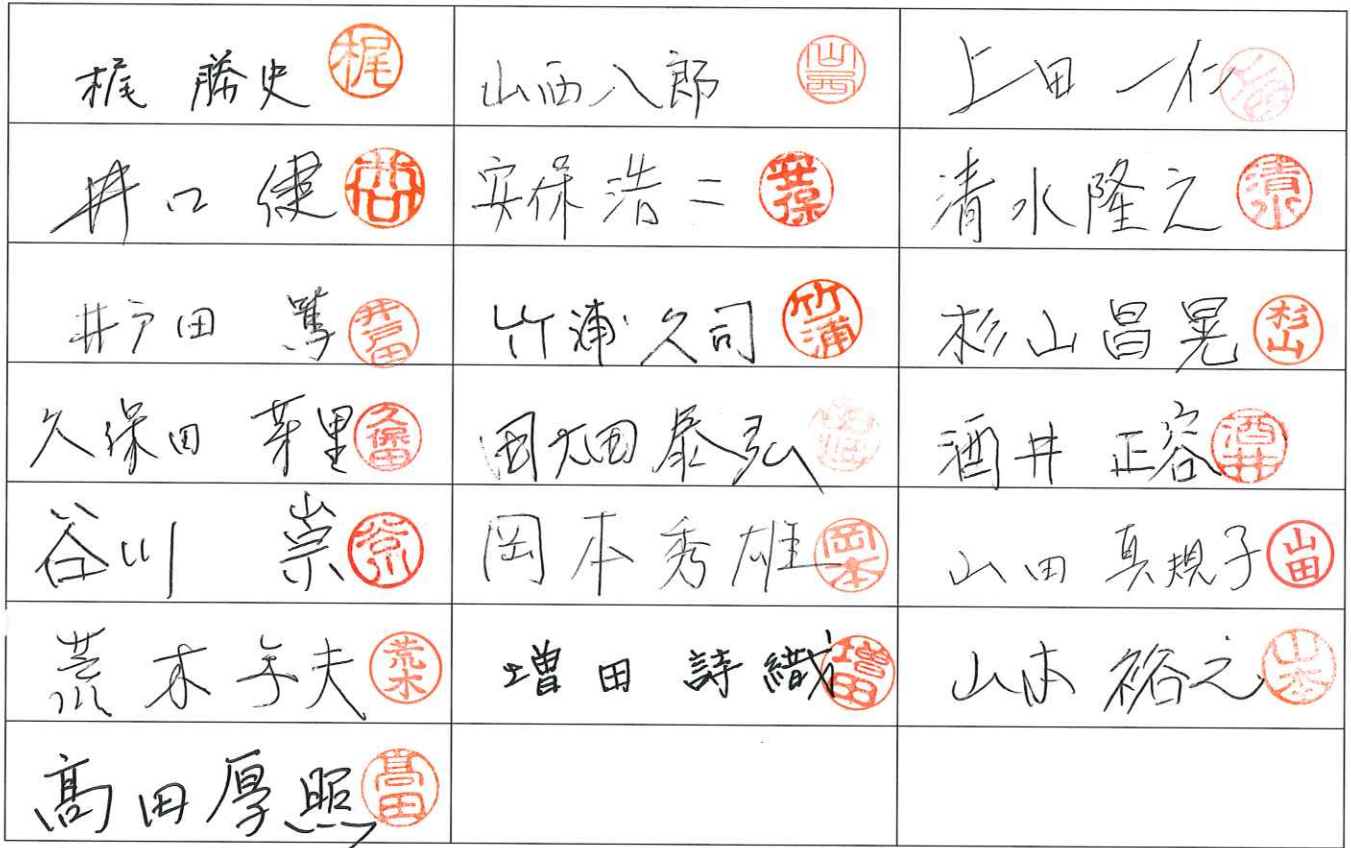 梶 勝史 梶 山西八郎 山西 上田 一仁
井口 健 井口 安保浩二 安保 清水隆之 清水
井戸田 篤 井戸田 竹浦久司 竹浦 杉山昌晃 杉山
久保田 芽里 久保田 田畑泰弘 酒井 正容 酒井
谷川 崇 谷川 岡本秀雄 岡本 山田 真規子 山田
荒木 夫 荒木 増田 詩織 増田 山本 裕之 山本
髙田厚照 髙田